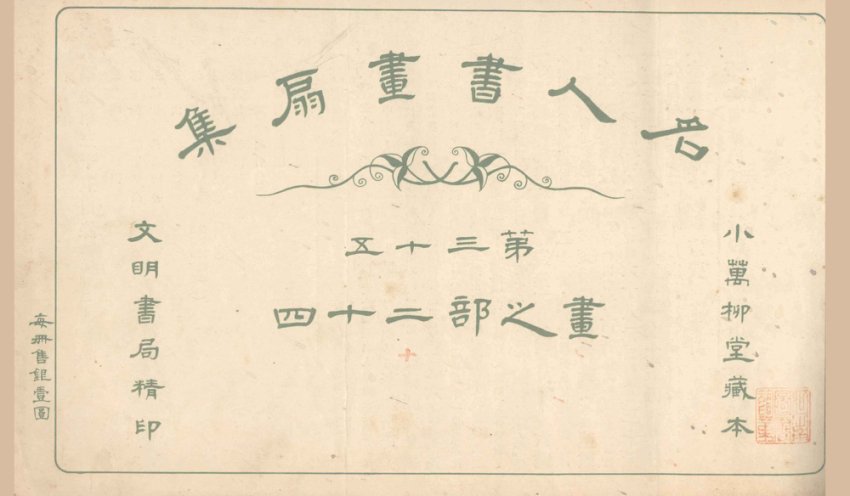 名人書畫扇集
第三十五
畫之部二十四
小萬柳堂藏本
文明書局精印
每冊售銀壹圓